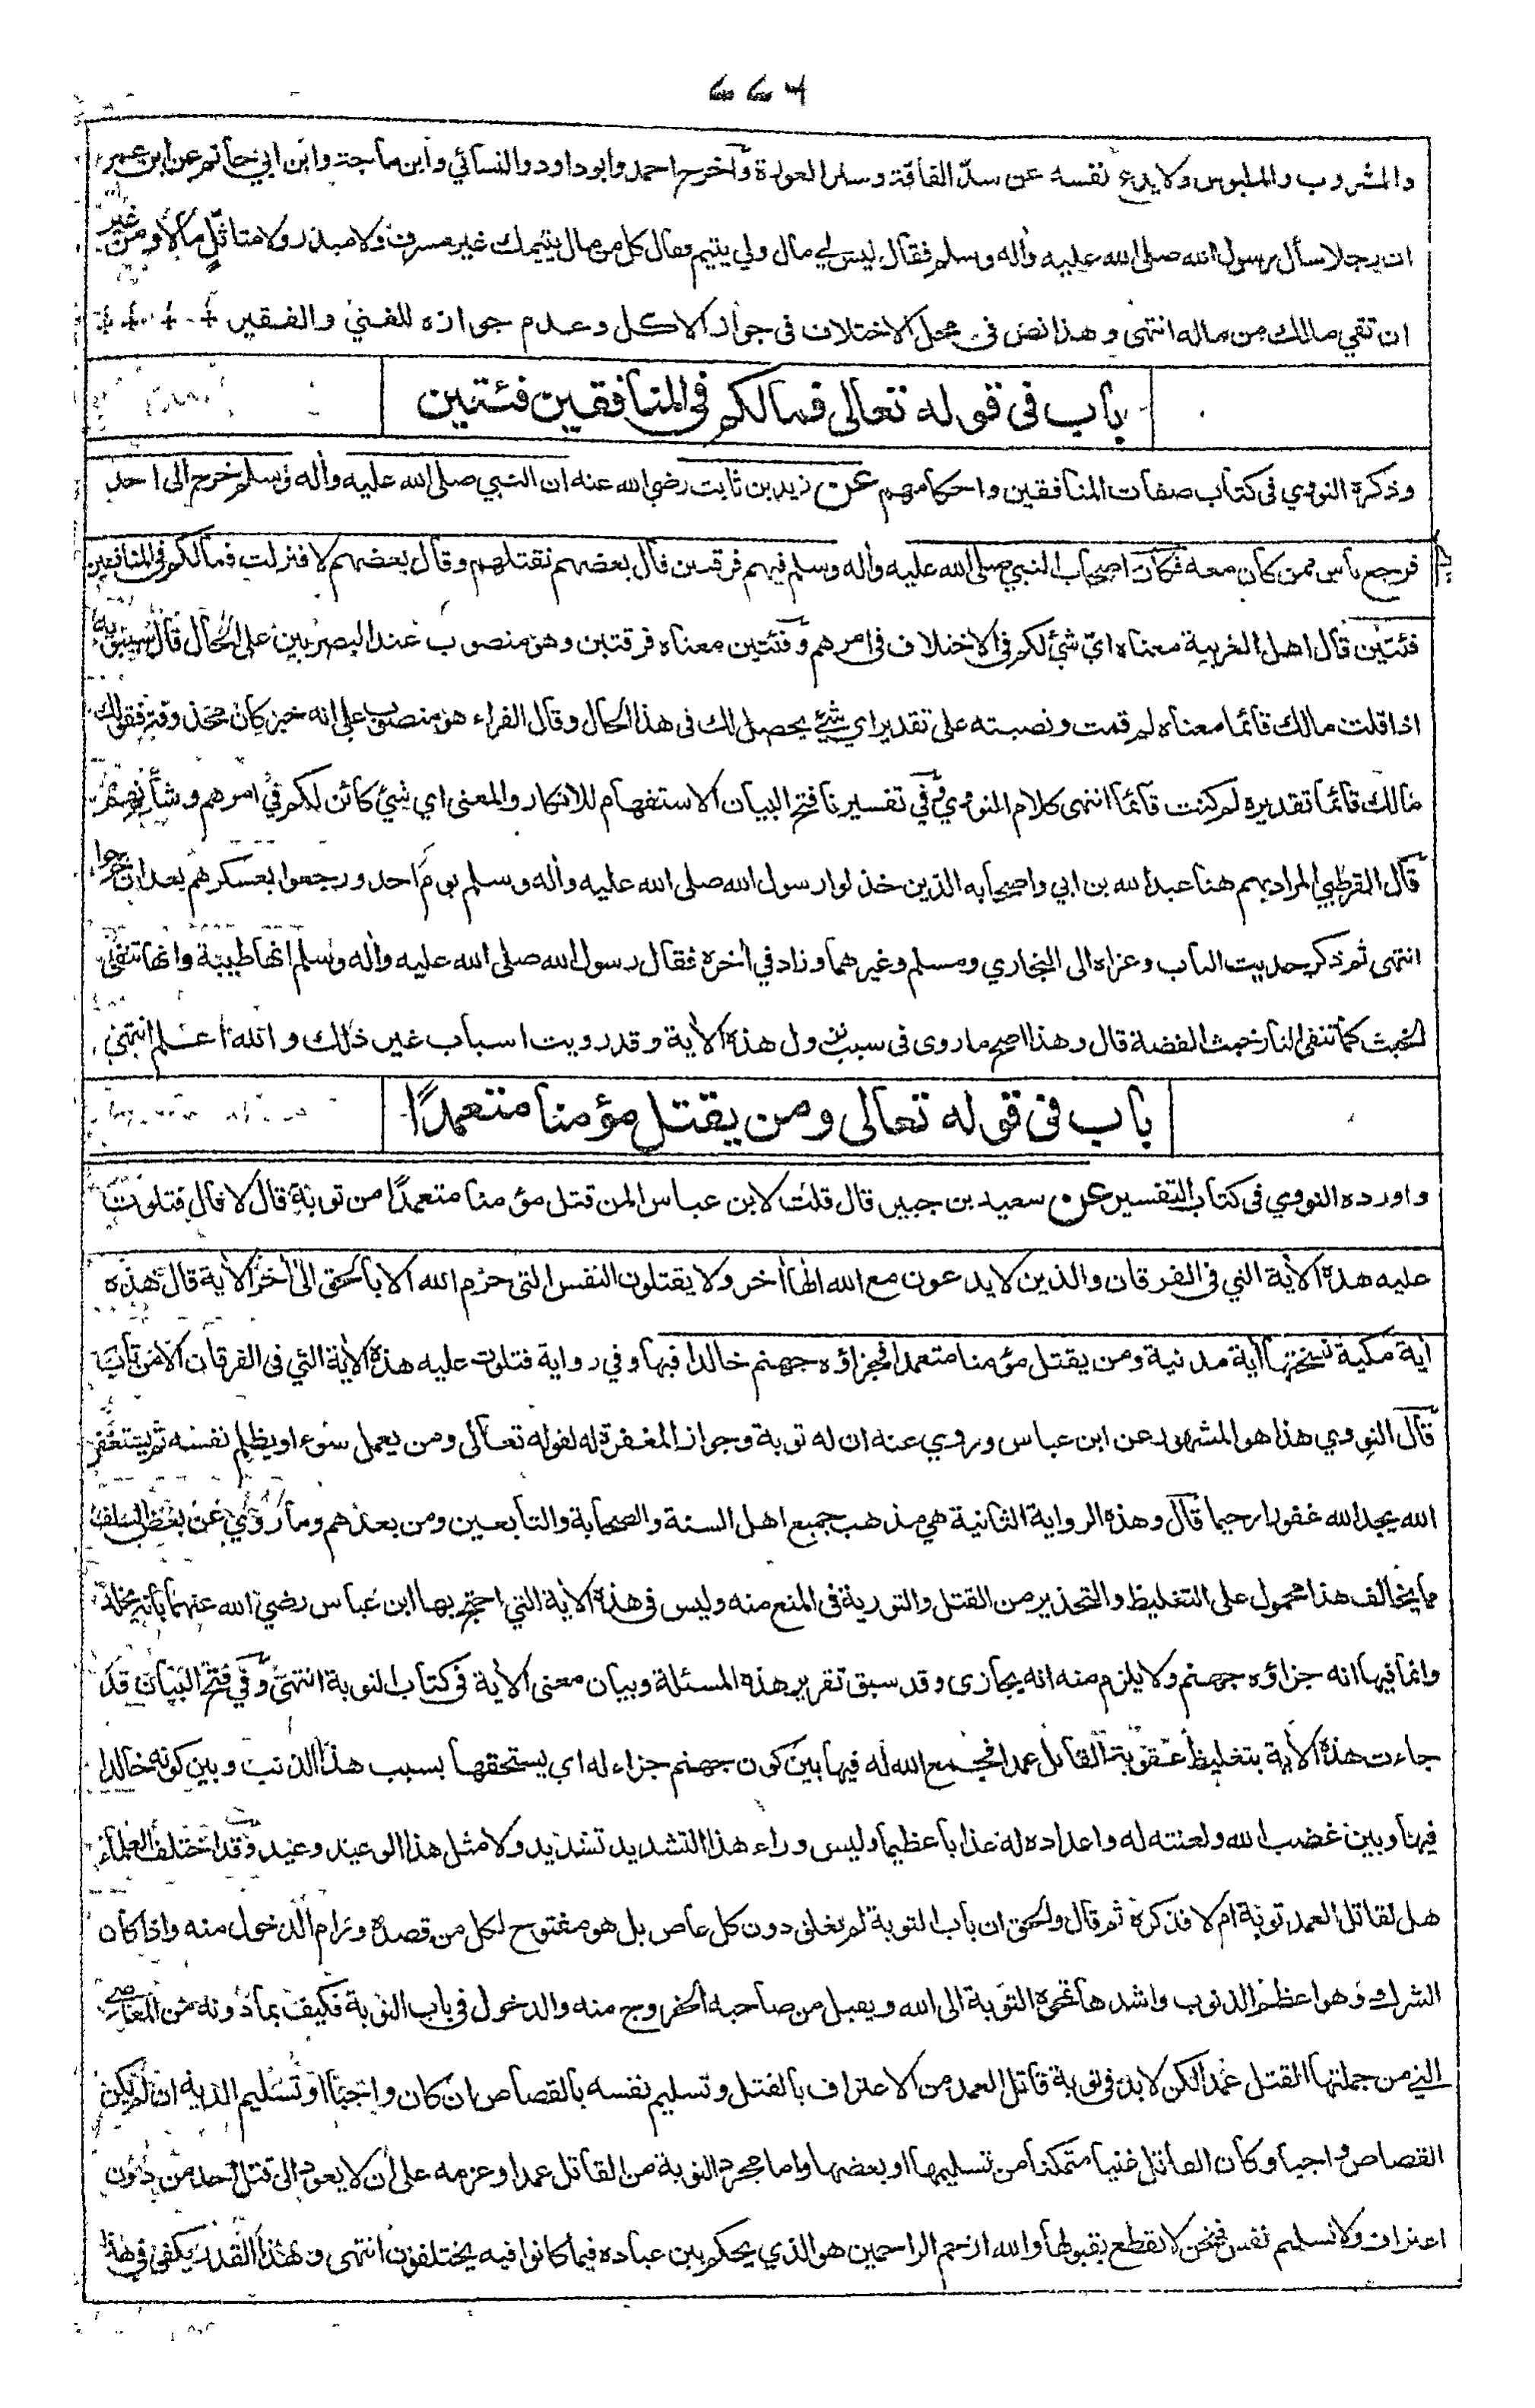 ٦٦٦
والمشروب والملبوس ولا يدع نفسه عن سدّ الفاقة وستر العورة وآخرج احمد وابوداود والنسائي وابن ماجة وابن ابي حاتم عن ابن عمر
ان رجلا سأل رسول الله صلى الله عليه وأله وسلم فقال ليس لي مال ولي يتيم فقال كل من مال يتيمك غير مسرف ولا مبذر ولا متاثّلٍ مالا ومن غير
ان تقي مالك من ماله انتهى وهذا نص في محل الاختلاف في جواز الاكل وعدم جوازه للغني والفقير
باب في قوله تعالى فمالكم في المنافقين فئتين
وذكرة النووي في كتاب صفات المنافقين واحكامهم عن زيد بن ثابت رضي الله عنه ان النبي صلى الله عليه وأله وسلم خرج الى احد
فرجع ناس ممن كان معه فكان اصحاب النبي صلى الله عليه وأله وسلم فيهم فرقتين قال بعضهم نقتلهم وقال بعضهم لا فنزلت فمالكم في المنافقين
فئتين قال اهل العربية معناه ايّ شئ لكم في الاختلاف في امرهم وفئتين معناه فرقتين وهو منصوب عند البصريين على الحال قال سيبويه
اذا قلت مالك قائما معناه لم قمت ونصبته على تقدير اي شئ يحصل لك في هذا الحال وقال الفراء هو منصوب على انه خبر كان محذوفة فقولك
مالك قائما تقديره لم كنت قائما انتهى كلام النووي وفي تفسيرنا فتح البيان الاستفهام للانكار والمعنى اي شئ كائن لكم في امرهم وشأنهم
قال القرطبي المراد بهم هنا عبد الله بن ابي واصحابه الذين خذلوا رسول الله صلى الله عليه وأله وسلم يوم احد ورجعوا بعسكرهم بعد ان خرجوا
انتهى ثم ذكر حديث الباب وعزاه الى البخاري ومسلم وغيرهما وزاد في أخرة فقال رسول الله صلى الله عليه وأله وسلم انها طيبة وانها تنفي
الخبث كما تنفي النار خبث الفضة قال وهذا اصح ما روى في سبب نزول هذه الأية وقد رويت اسباب غير ذلك والله اعلم انتهى
باب في قوله تعالى ومن يقتل مؤمنا متعمدًا
واورده النووي في كتاب التفسير عن سعيد بن جبير قال قلت لابن عباس المن قتل مؤمنا متعمدًا من توبة قال لا قال فتلوت
عليه هذه الأية التي في الفرقان والذين لا يدعون مع الله الها أخر ولا يقتلون النفس التي حرّم الله الا بالحق الى أخر الأية قال هذه
أية مكية نسختها أية مدنية ومن يقتل مؤمنا متعمدا فجزاؤه جهنم خالدا فيها وفي رواية فتلوت عليه هذه الأية التي في الفرقان الا من تاب
قال النووي هذا هو المشهور عن ابن عباس وروي عنه ان له توبة وجواز المغفرة له لقوله تعالى ومن يعمل سوء او يظلم نفسه ثم يستغفر
الله يجد الله غفورا رحيما قال وهذه الرواية الثانية هي مذهب جميع اهل السنة والصحابة والتابعين ومن بعدهم وما روي عن بعض السلف
مما يخالف هذا محمول على التغليظ والتحذير من القتل والتورية في المنع منه وليس في هذه الأية التي احتج بها ابن عباس رضي الله عنهما بانه يخلد
وانما فيها انه جزاؤه جهنم ولا يلزم منه انه يجازى وقد سبق تقرير هذه المسئلة وبيان معنى الأية في كتاب التوبة انتهى وفي فتح البيان قد
جاءت هذه الأية بتغليظ عقوبة القاتل عمدا فجمع الله له فيها بين كون جهنم جزاء له اي يستحقها بسبب هذا الذنب وبين كونه خالدا
فيها وبين غضب الله ولعنته له واعداده له عذابا عظيما وليس وراء هذا التشديد تشديد ولا مثل هذا الوعيد وعيد وقد اختلف العلماء
هل لقاتل العمد توبة ام لا فذكرة ثم قال والحق ان باب التوبة لم يغلق دون كل عاص بل هو مفتوح لكل من قصده ورام الدخول منه واذا كان
الشرك وهو اعظم الذنوب واشدها تمحوه التوبة الى الله ويقبل من صاحبه الخروج منه والدخول في باب التوبة فكيف بما دونه من المعاصي
التي من جملتها القتل عمدا لكن لا بد في توبة قاتل العمد من الاعتراف بالقتل وتسليم نفسه بالقصاص ان كان واجبًا او تسليم الدية ان لم يكن
القصاص واجبا وكان القاتل غنيا متمكنا من تسليمها او بعضها واما مجرد التوبة من القاتل عمدا وعزمه على ان لا يعود الى قتل احد من دون
اعتراف ولا تسليم نفس فنحن لا نقطع بقبولها والله ارحم الراحمين هو الذي يحكم بين عباده فيما كانوا فيه يختلفون انتهى وهذا القدر يكفي في هذا